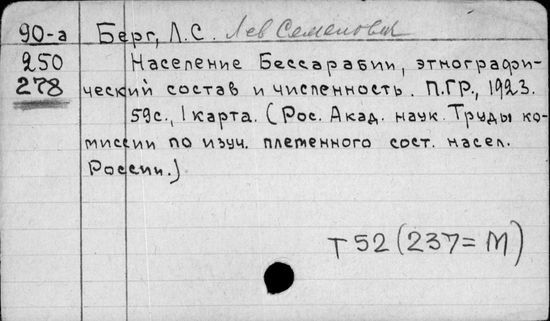 90-а Берг, Л.С. Лев Семенович
250 Население Бессарабии, этнографи-
278 ческий состав и численность. П.ГР., 1923.
59с., 1 карта. (Рос. Акад. наук. Труды ко-
миссии по изуч. племенного сост. насел.
России.)
Т 52 (237=М)